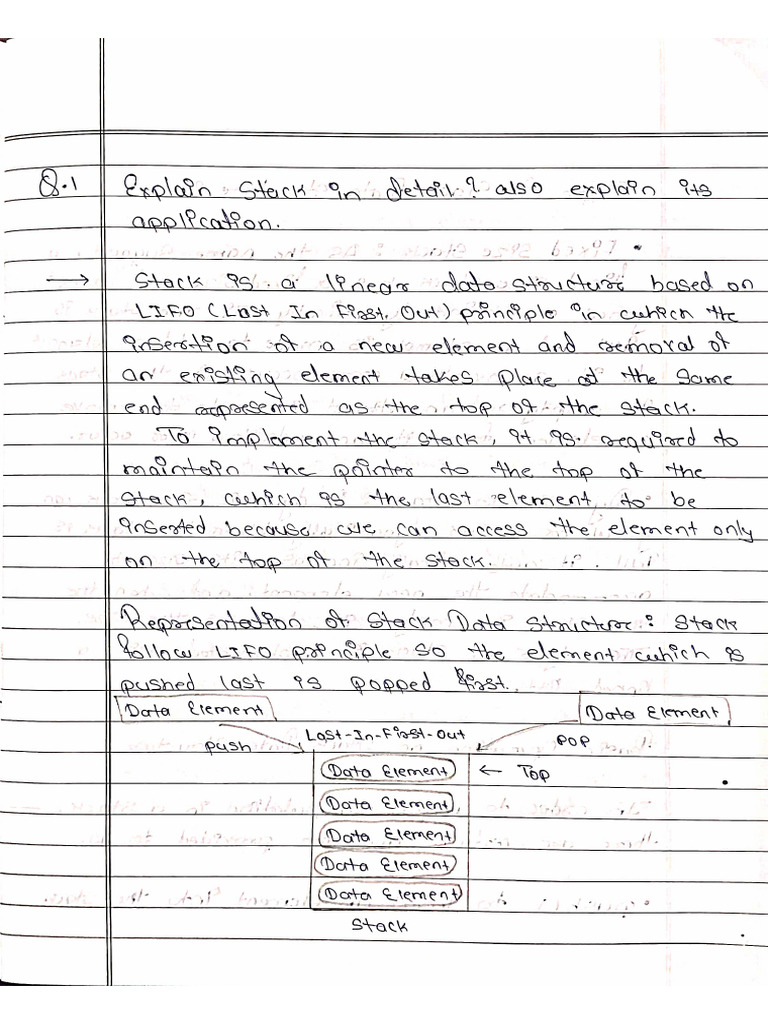 Q.1 Explain Stack in detail? also explain its
application.
→ Stack is a linear data structure based on
LIFO (Last In First Out) principle in which the
insertion of a new element and removal of
an existing element takes place at the same
end represented as the top of the stack.
To implement the stack, it is required to
maintain the pointer to the top of the
stack, which is the last element to be
inserted because we can access the element only
on the top of the stack.
Representation of Stack Data Structure: Stack
follow LIFO principle so the element which is
pushed last is popped first.
Data Element Data Element
push Last-In-First-Out pop
Data Element ← Top
Data Element
Data Element
Data Element
Data Element
Stack